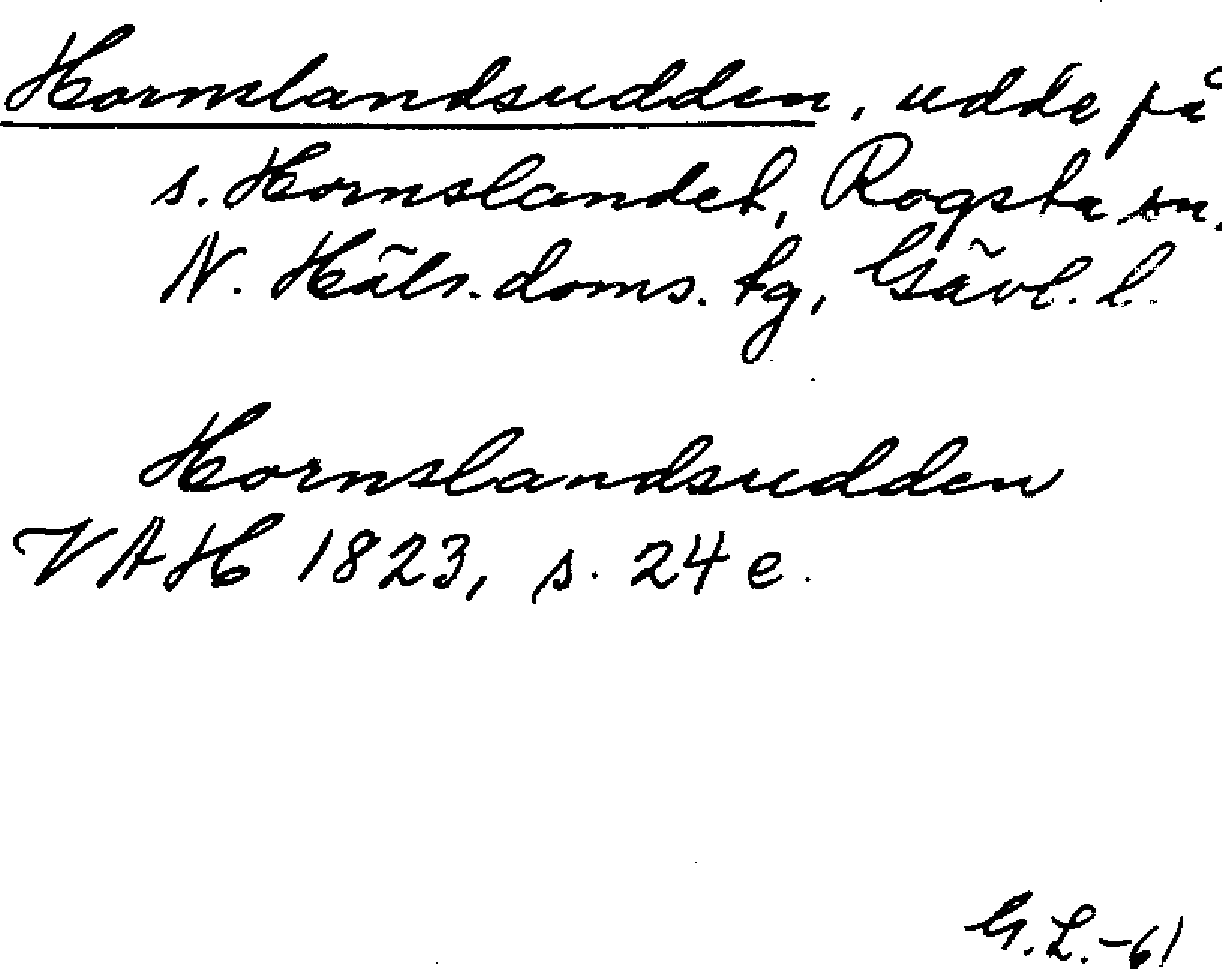 Hornslandsudden, udde på
s. Hornslandet, Rogsta sn,
N. Häls. doms. tg, Gävl. l.
Hornslandsudden
VAH 1823, s. 24 e.
G.L.-61